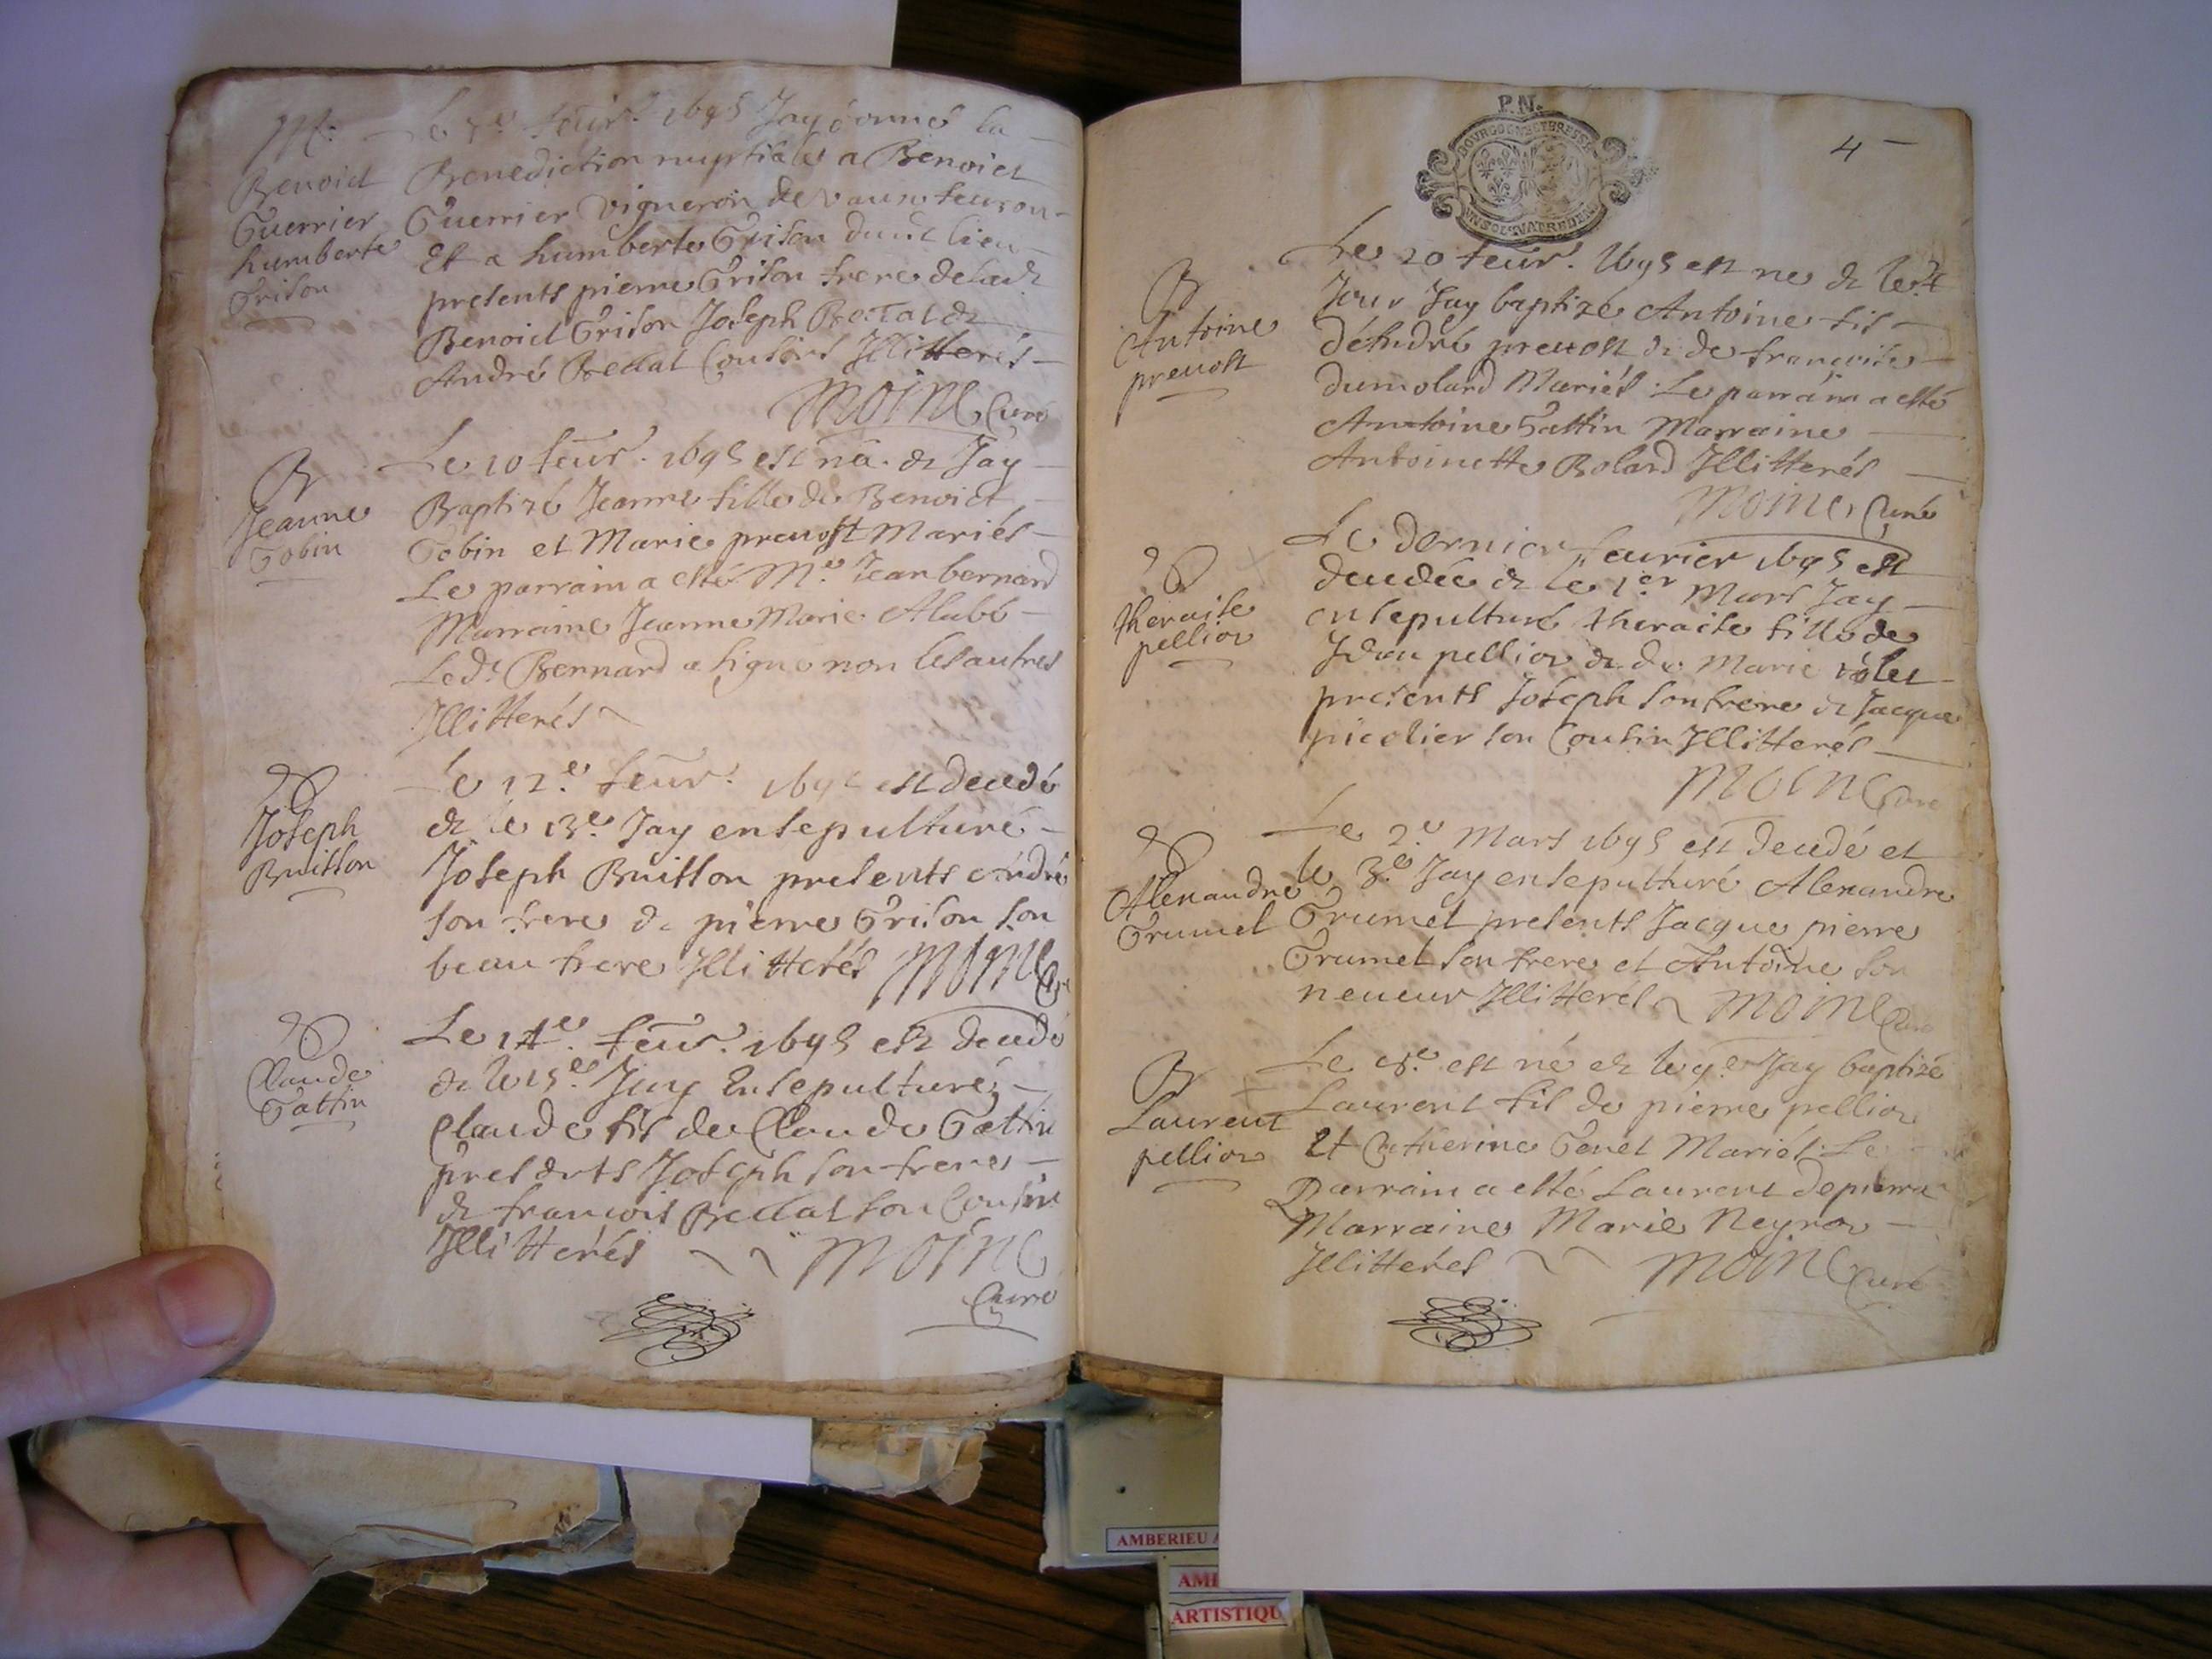 M.
Benoict
Guerrier
humberte
Grison
Le 7e feur. 1695 Jay donné la
Benediction nuptiale a Benoict
Guerrier Vigneron de Vaux feuron
Et a humberte Grison dudt lieu
presents pierre Grison frere de lad
Benoict Grison Joseph &
André Cousins Illitterés
Moine Curé
B
Jeanne
Gobin
Le 10 feur. 1695 est née & Jay
Baptizé Jeanne fille de Benoict
Gobin et Marie preuost Mariés
Le parrain a esté Me Jean bernard
Marraine Jeanne Marie Alabé
Led. Bernard a signé non les autres
Illitterés
Joseph
Buisson
Le 12e feur. 1695 est decedé
& le 13e Jay ensepulturé
Joseph Buisson presents André
son frere & pierre Grison son
beau frere Illitterés Moine Cu
Claude
Gattin
Le 14e feur. 1695 est decedé
& le 15e Jay Ensepulturé
Claude fis de Claude Gattin
presents Joseph son frere
& francois son Cousin
Illitterés Moine
Curé
P.N.
BOURGOGNE ET BRESSE
4
B
Antoine
preuost
Le 20 feur. 1695 est ne & led
Jour Jay baptizé Antoine fis
d'André preuost & de francoise
dumolard Mariés Le parrain a esté
Antoine Gattin Marraine
Antoinette Bolard Illitterés
Moine Curé
theraise
pellior
Le dernier feurier 1695 est
decedée & le 1er Mars Jay
ensepulturé theraise fille de
Jean pellior & de Marie rolet
presents Joseph son frere & Jacque
picolier son Cousin Illitterés
Moine Curé
Alexandre
Grumel
Le 2e Mars 1695 est decedé et
le 3e Jay ensepulturé Alexandre
Grumel presents Jacque pierre
Grumel son frere et Antoine son
neueur Illitterés Moine Curé
B
Laurent
pellior
Le 8e est né & le 9e Jay baptizé
Laurent fis de pierre pellior
Et Catherine Genet Mariés Le
Parrain a esté Laurent depierra
Marraine Marie Neyror
Illitterés Moine Curé
AMBERIEU
AM
ARTISTIQU